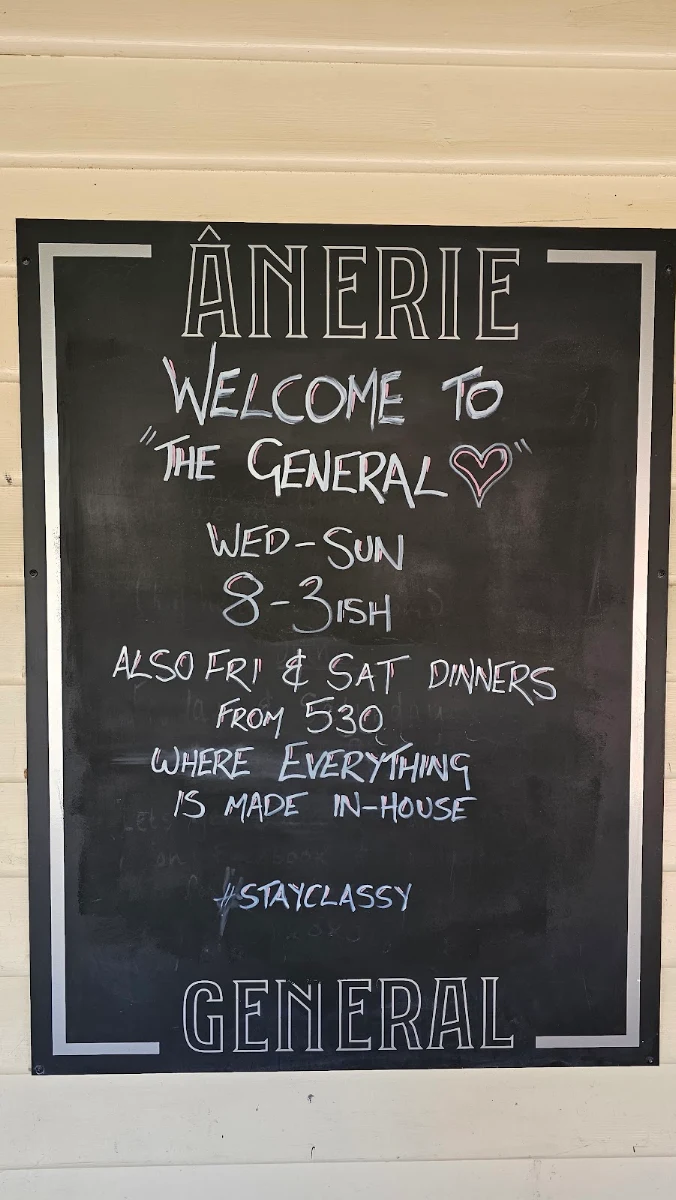 ÂNERIE
WELCOME TO
"THE GENERAL ♡"
WED-SUN
8-3ISH
ALSO FRI & SAT DINNERS
FROM 530
WHERE EVERYTHING
IS MADE IN-HOUSE
#STAYCLASSY
GENERAL